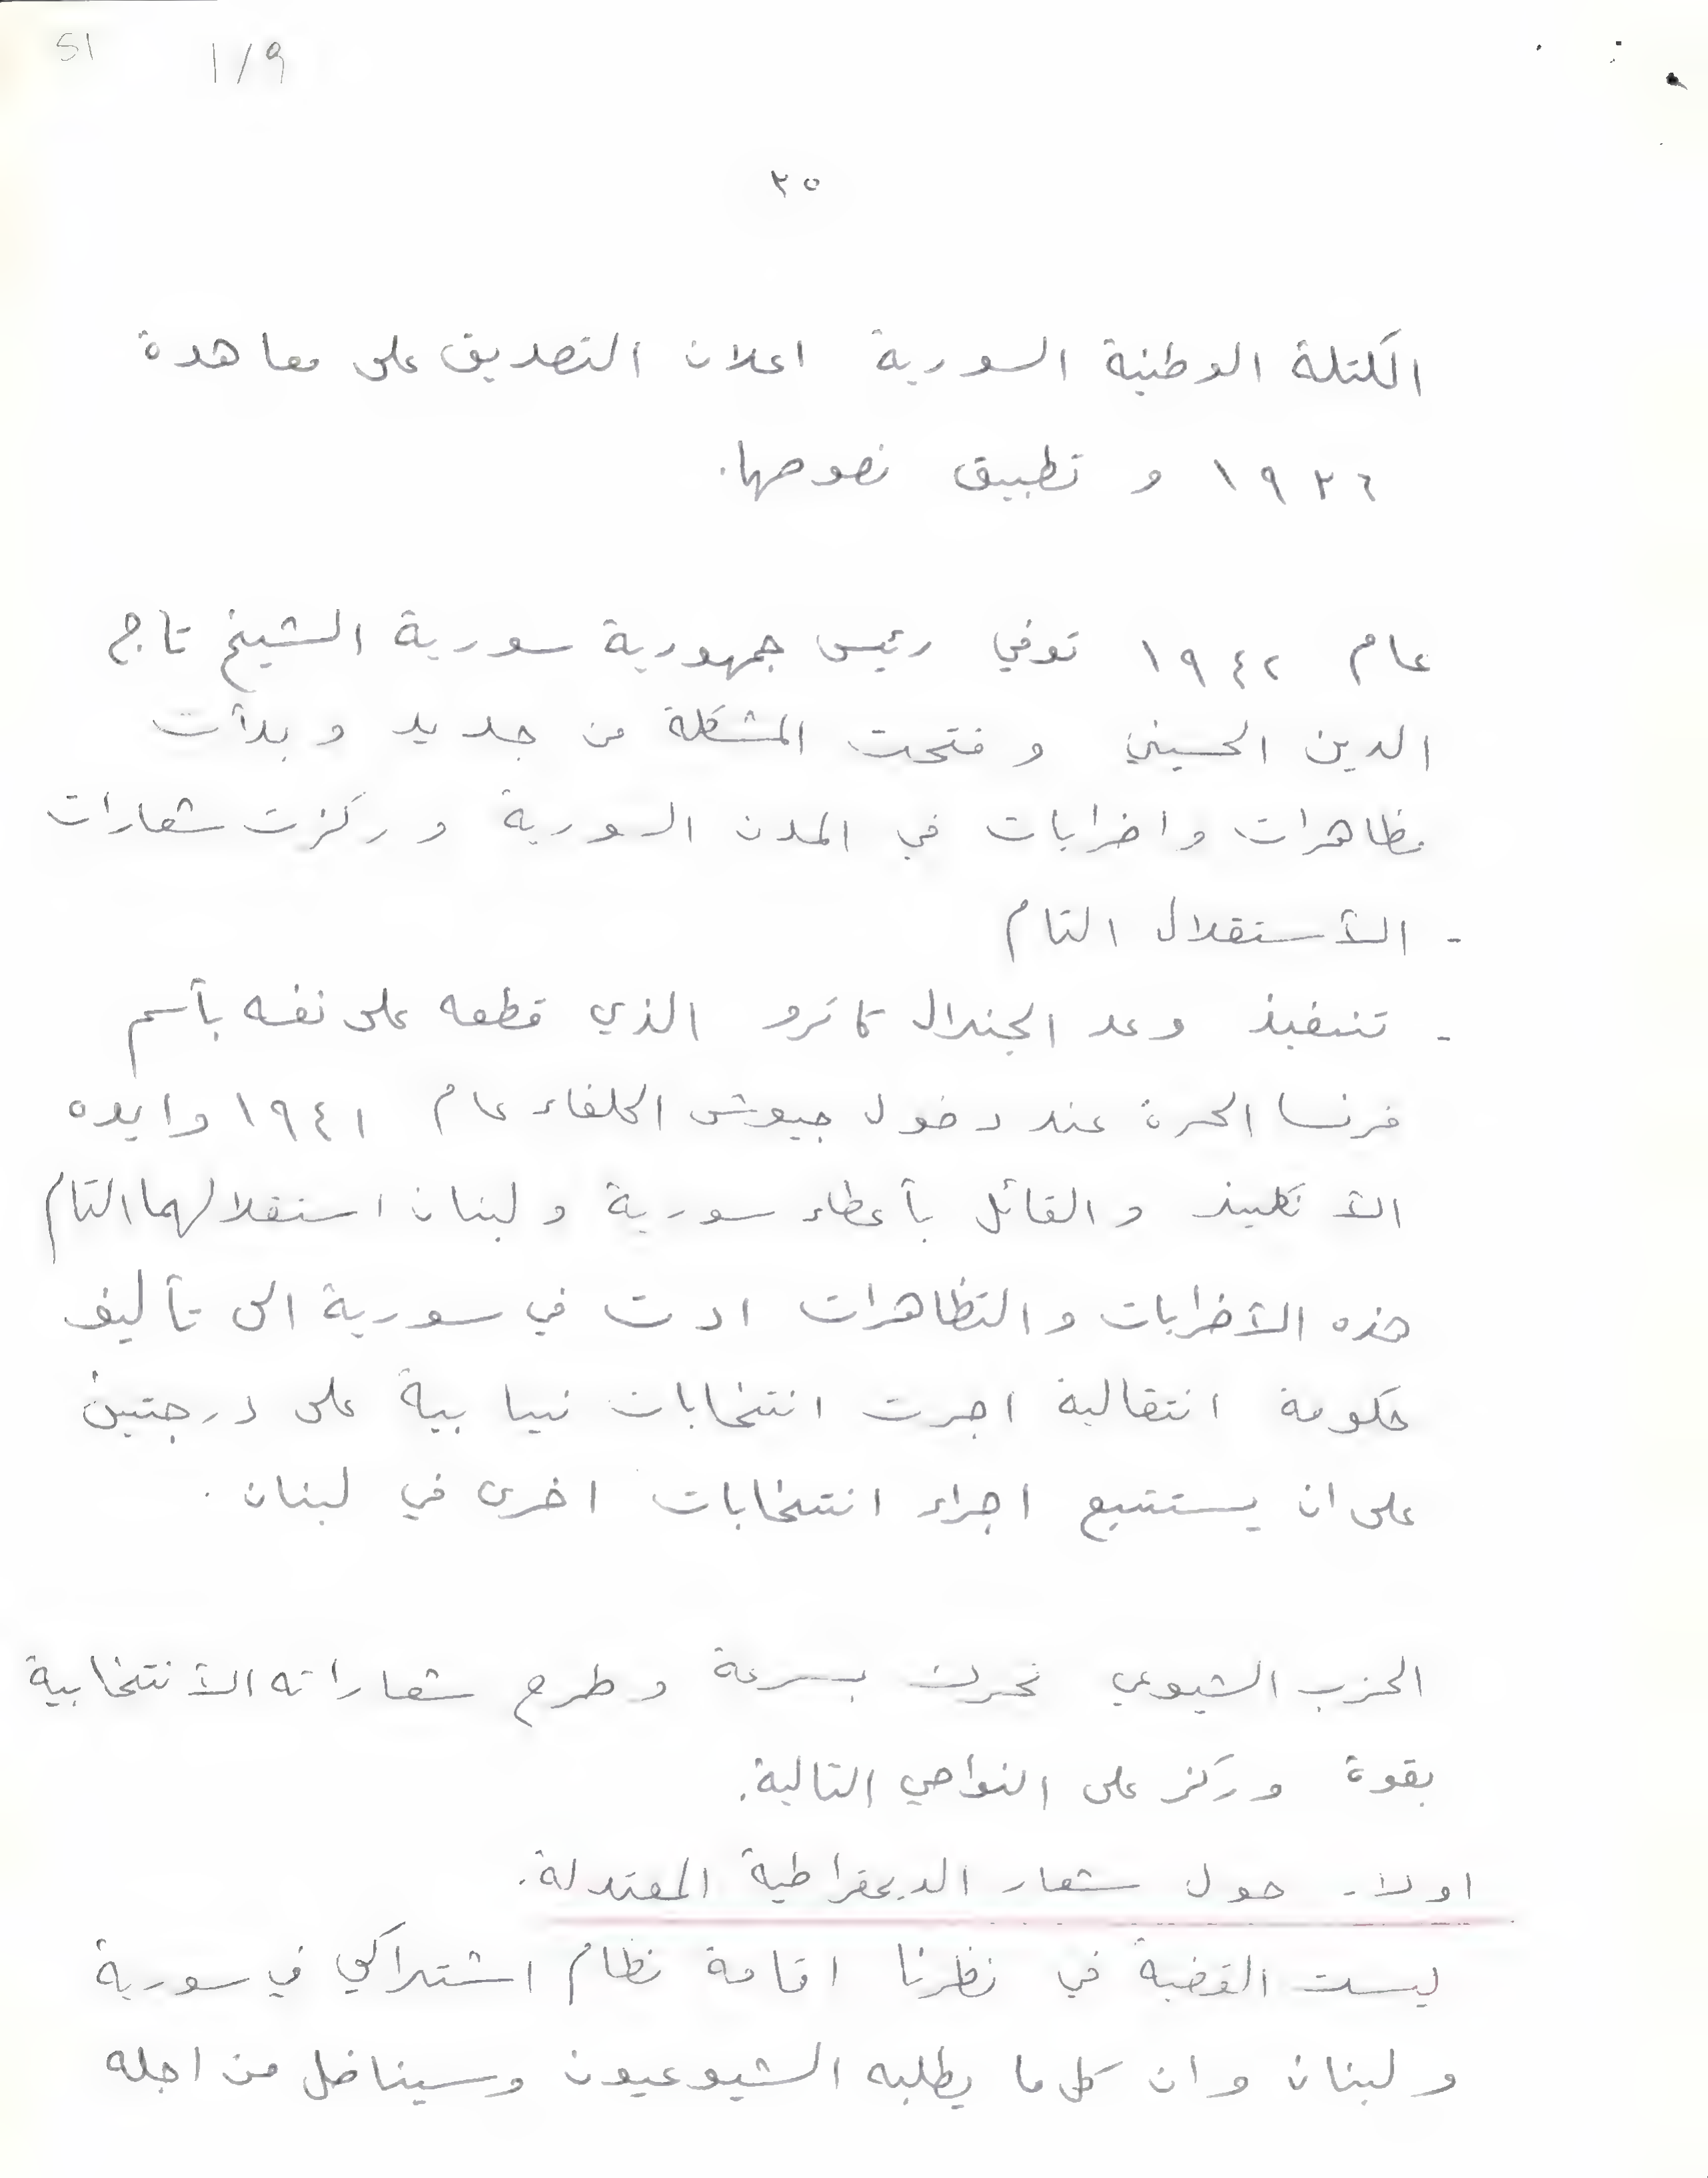 51 1/9
٢٥
الكتلة الوطنية السورية اعلان التصديق على معاهدة
١٩٣٦ و تطبيق نصوصها.
عام ١٩٤٢ توفي رئيس جمهورية سورية الشيخ تاج
الدين الحسيني و فتحت المشكلة من جديد و بدأت
مظاهرات واضرابات في المدن السورية و ركزت شعارات
- الأستقلال التام
- تنفيذ وعد الجنرال كاترو الذي قطعه على نفسه بأسم
فرنسا الحرة عند دخول جيوش الحلفاء عام ١٩٤١ وايده
الأنكليز و القائل بأعطاء سورية و لبنان استقلالهما التام
هذه الأضرابات و التظاهرات ادت في سورية الى تأليف
حكومة انتقالية اجرت انتخابات نيابية على درجتين
على ان يستتبع اجراء انتخابات اخرى في لبنان .
الحزب الشيوعي تحرك بسرعة و طرح شعاراته الأنتخابية
بقوة و ركز على النواحي التالية.
اولا - حول شعار الديمقراطية المعتدلة.
ليست القضية في نظرنا اقامة نظام اشتراكي في سورية
و لبنان وان كل ما يطلبه الشيوعيون وسيناضل من اجله